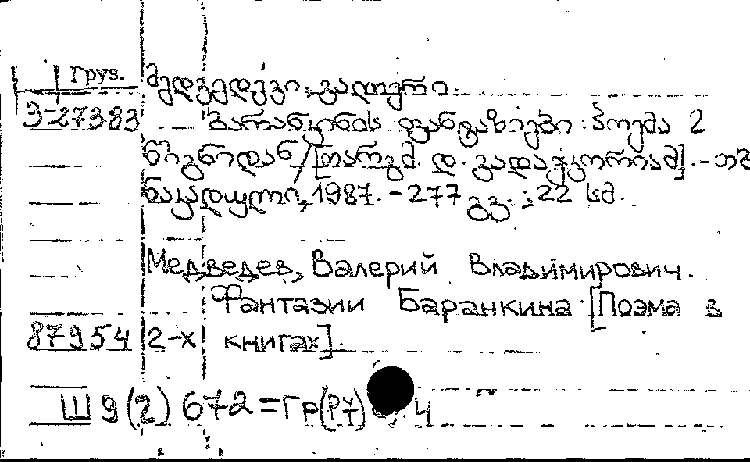 Груз. მედვედევი, ვალერი.
3-27383 ბარანკინის ფანტაზიები: პოემა 2
წიგნიდან / [თარგმ. დ. გადაჭკორიამ]. - თბ
ნაკადული, 1987. - 277 გვ.; 22 სმ.
Медведев, Валерий Владимирович.
Фантазии Баранкина [Поэма в
87954 2-х книгах].
Ш 9(2) 672 = Гр(Ру) 4